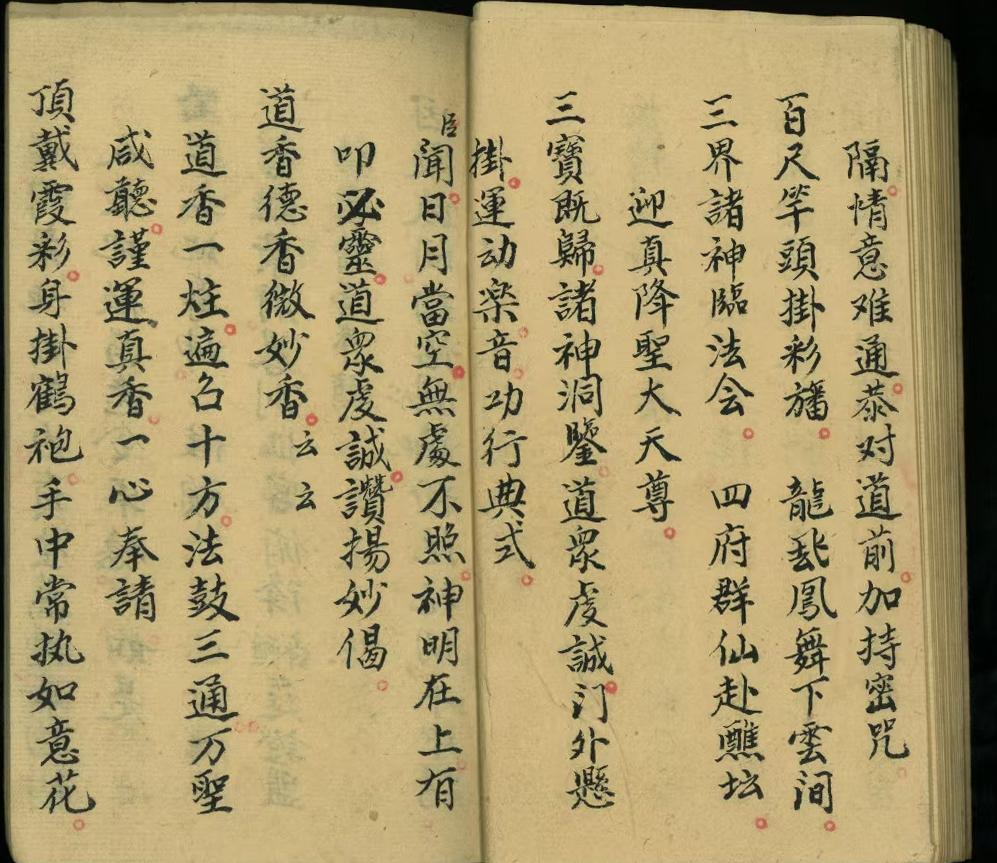 隔情意难通恭对道前加持密咒
百尺竿頭掛彩旛 龍飛鳳舞下雲间
三界諸神臨法会 四府群仙赴醮坛
迎真降聖大天尊
三寶既歸諸神洞鑒道眾虔誠门外懸
掛運动楽音功行典式
臣聞日月當空無處不照神明在上有
叩必靈道眾虔誠讚揚妙偈
道香德香微妙香云云
道香一炷遍召十方法鼓三通万聖
咸聽謹運真香一心奉請
頂戴霞彩身掛鶴袍手中常执如意花